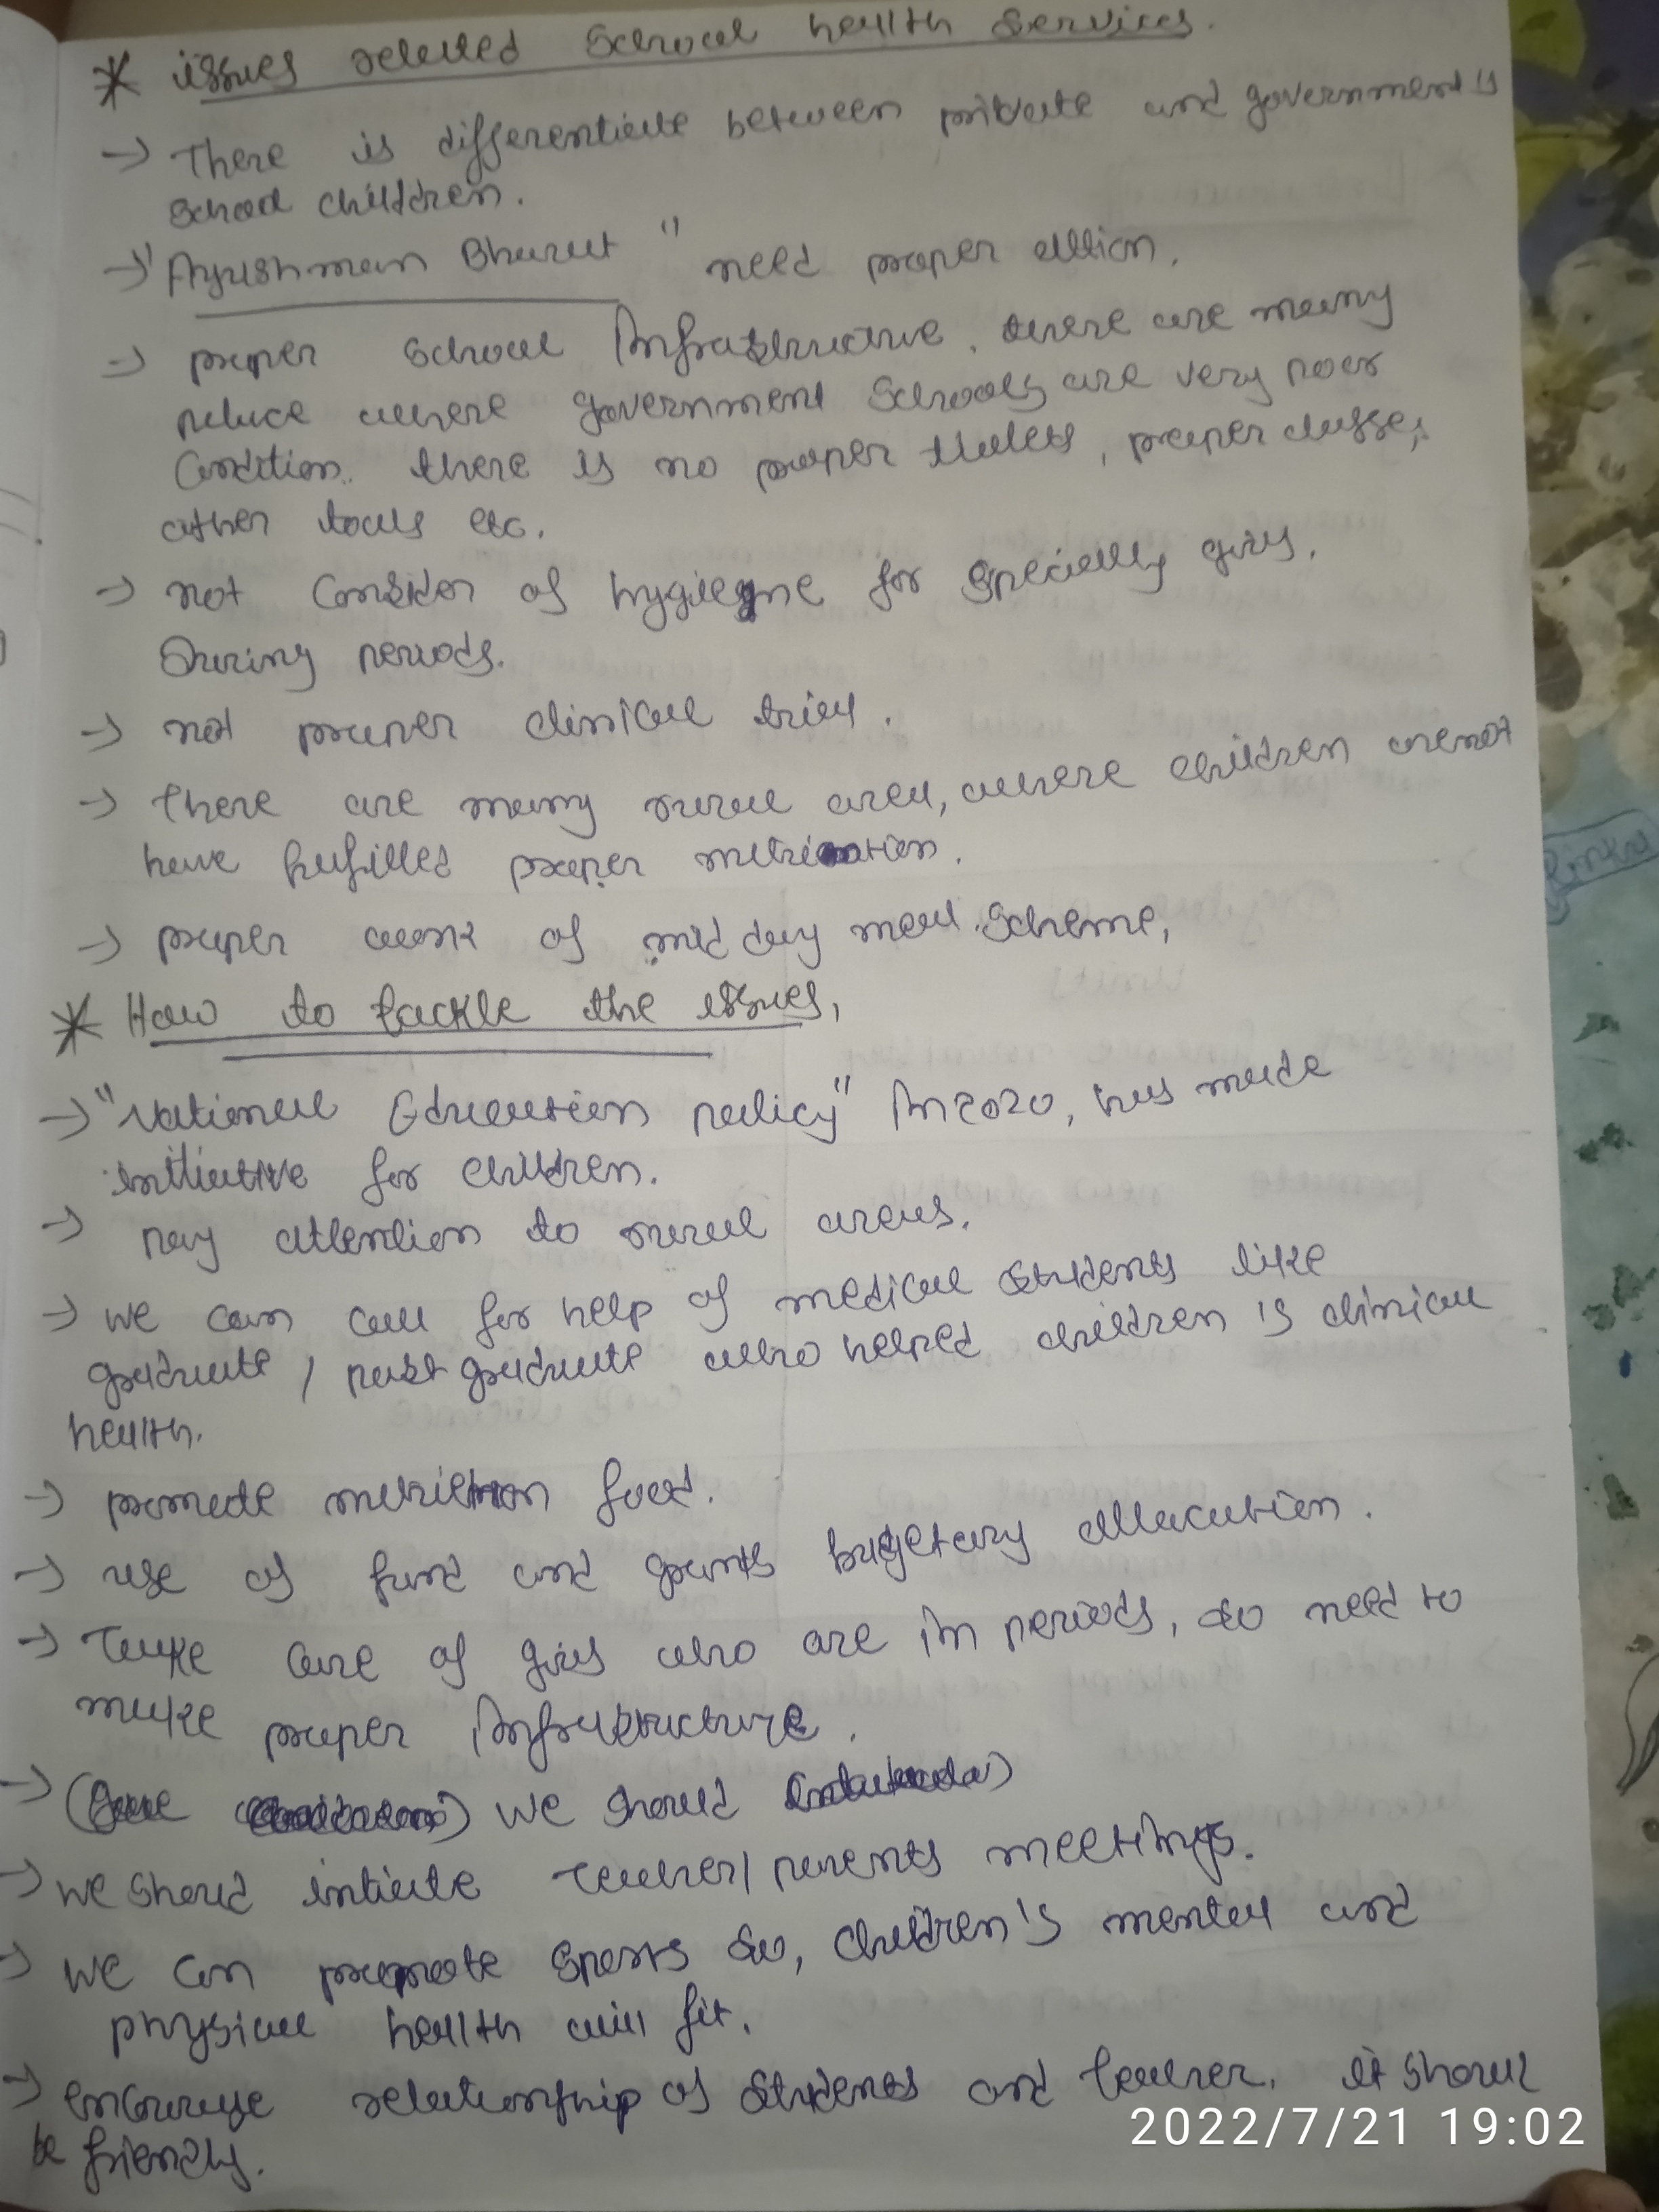 * issues related School health Services.
→ There is differentiate between private and government's
School children.
→ "Ayushman Bharat" need proper action.
→ proper school Infrastructure. there are many
place where government Schools are very poor
Condition. there is no proper toilets, proper classes,
other tools etc.
→ not Consider of hygiene for specially girls.
During periods.
→ not proper clinical trial.
→ there are many rural area, where children arenot
have fulfilled proper nutrition.
→ proper work of mid day meal Scheme,
* How to tackle the issues,
→ "National Education policy" In 2020, has made
initiative for children.
→ pay attention to rural areas.
→ we can call for help of medical students like
graduate / post graduate who helped children is clinical
health.
→ promote nutrition food.
→ use of fund and grants budgetary allocation.
→ Take Care of girls who are in periods, so need to
make proper Infrastructure.
→ we should
→ we should intiate Teacher/parents meetings.
→ we can promote Sports so, children's mental and
physical health will fit.
→ encourage relationship of students and teacher. it should
be friendly.
2022/7/21 19:02